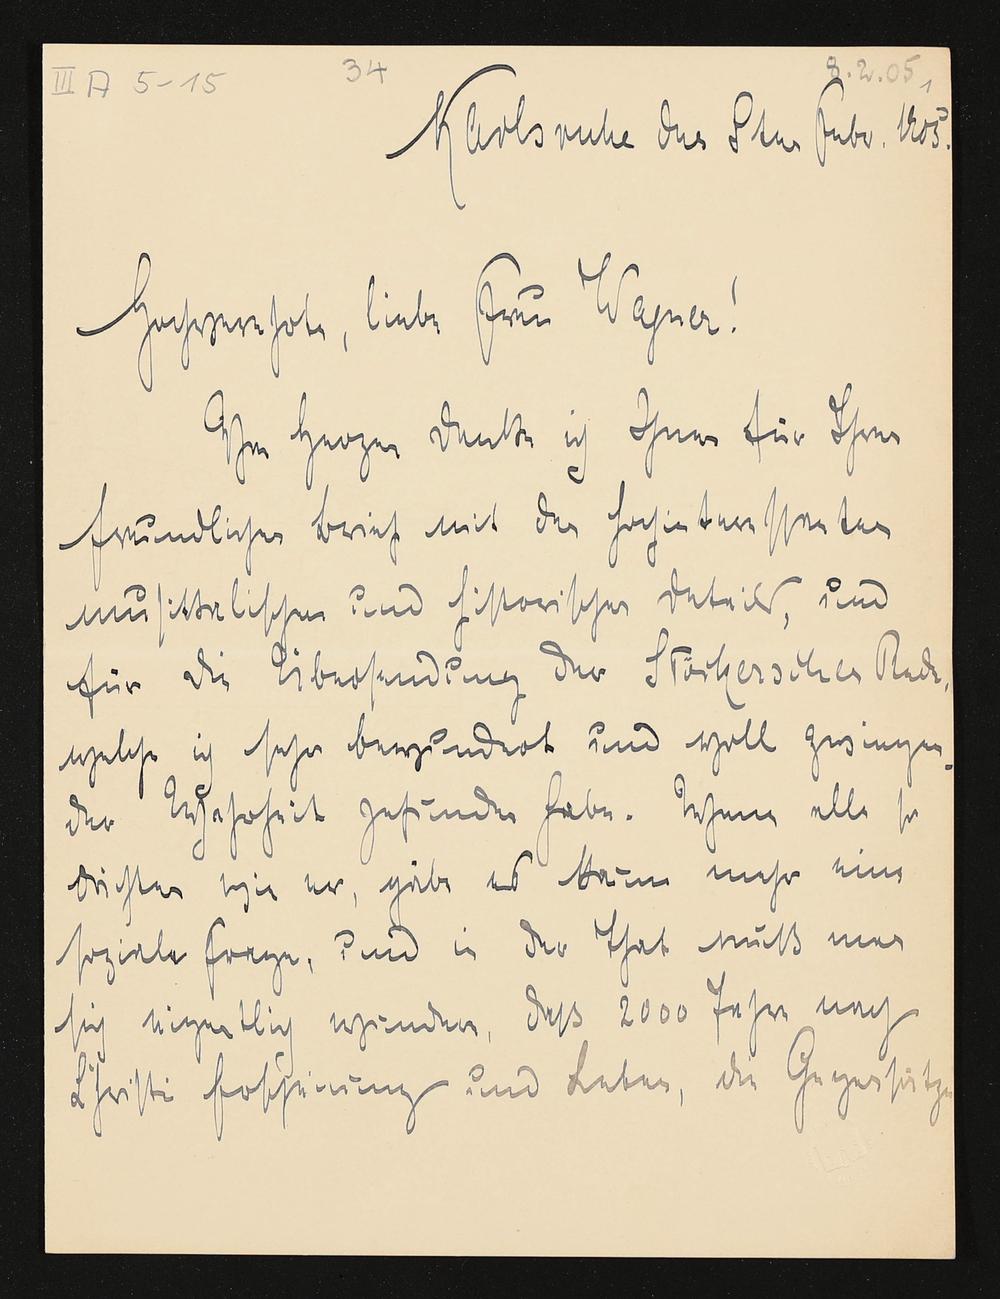 III A 5-15 34 8.2.05,
Karlsruhe den 8ten Febr. 1905.
Hochverehrte, liebe Frau Wagner!
Von Herzen danke ich Ihnen für Ihren
freundlichen Brief mit den hochinteressanten
musikalischen und historischen Details, und
für die Übersendung der Stöckerschen Rede,
welche ich sehr bewundert und voll zwingen-
der Wahrheit gefunden habe. Wenn alle so
dächten wie er, gäbe es kaum mehr eine
soziale Frage, und in der That muß man
sich eigentlich wundern, daß 2000 Jahre nach
Christi Erscheinung und Leben, die Gegensätze